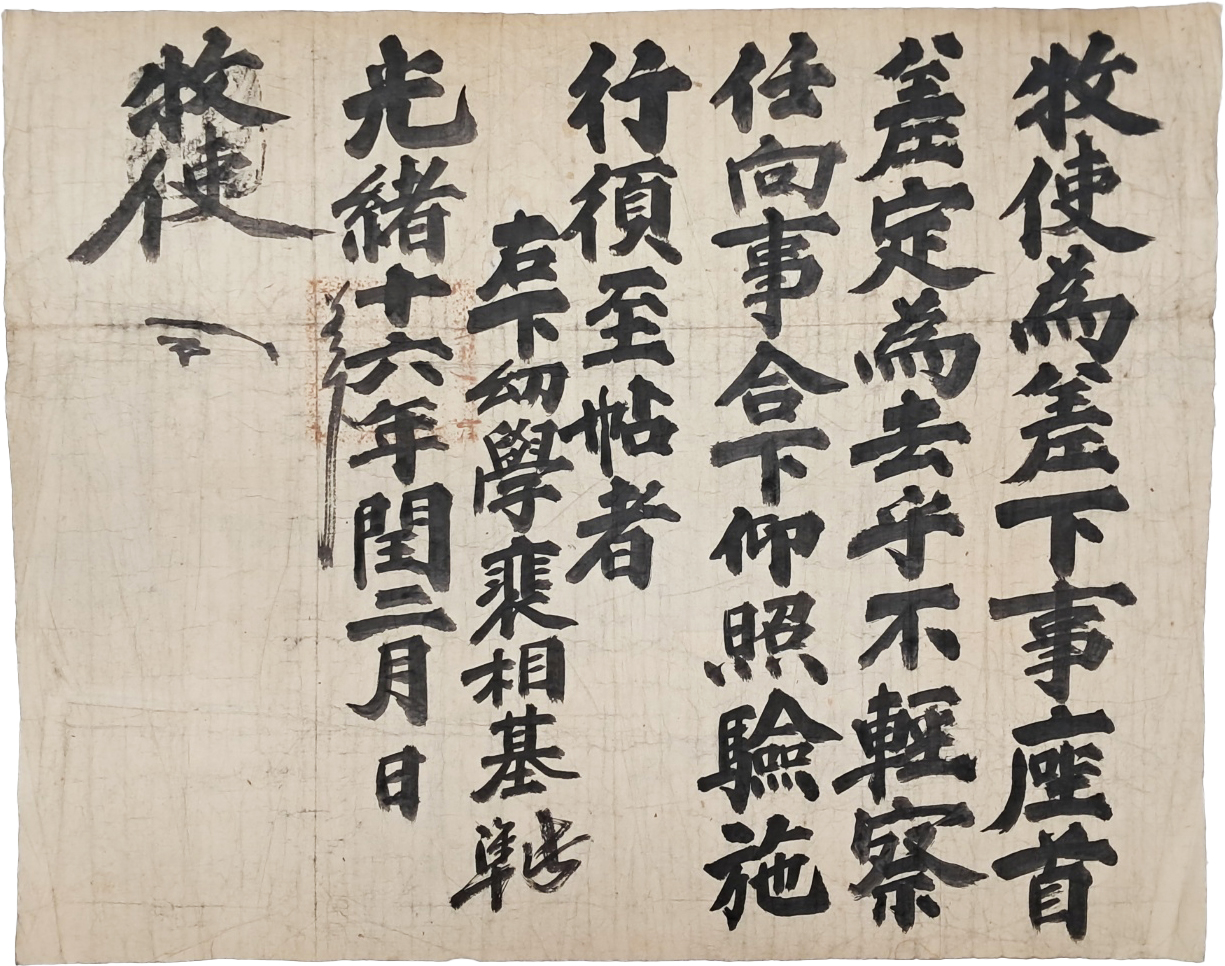 牧使爲差下事座首
差定爲去乎不輕察
任向事合下仰照驗施
行須至帖者
右下幼學裴相基 準此
光緖十六年閏二月 日
差
牧使